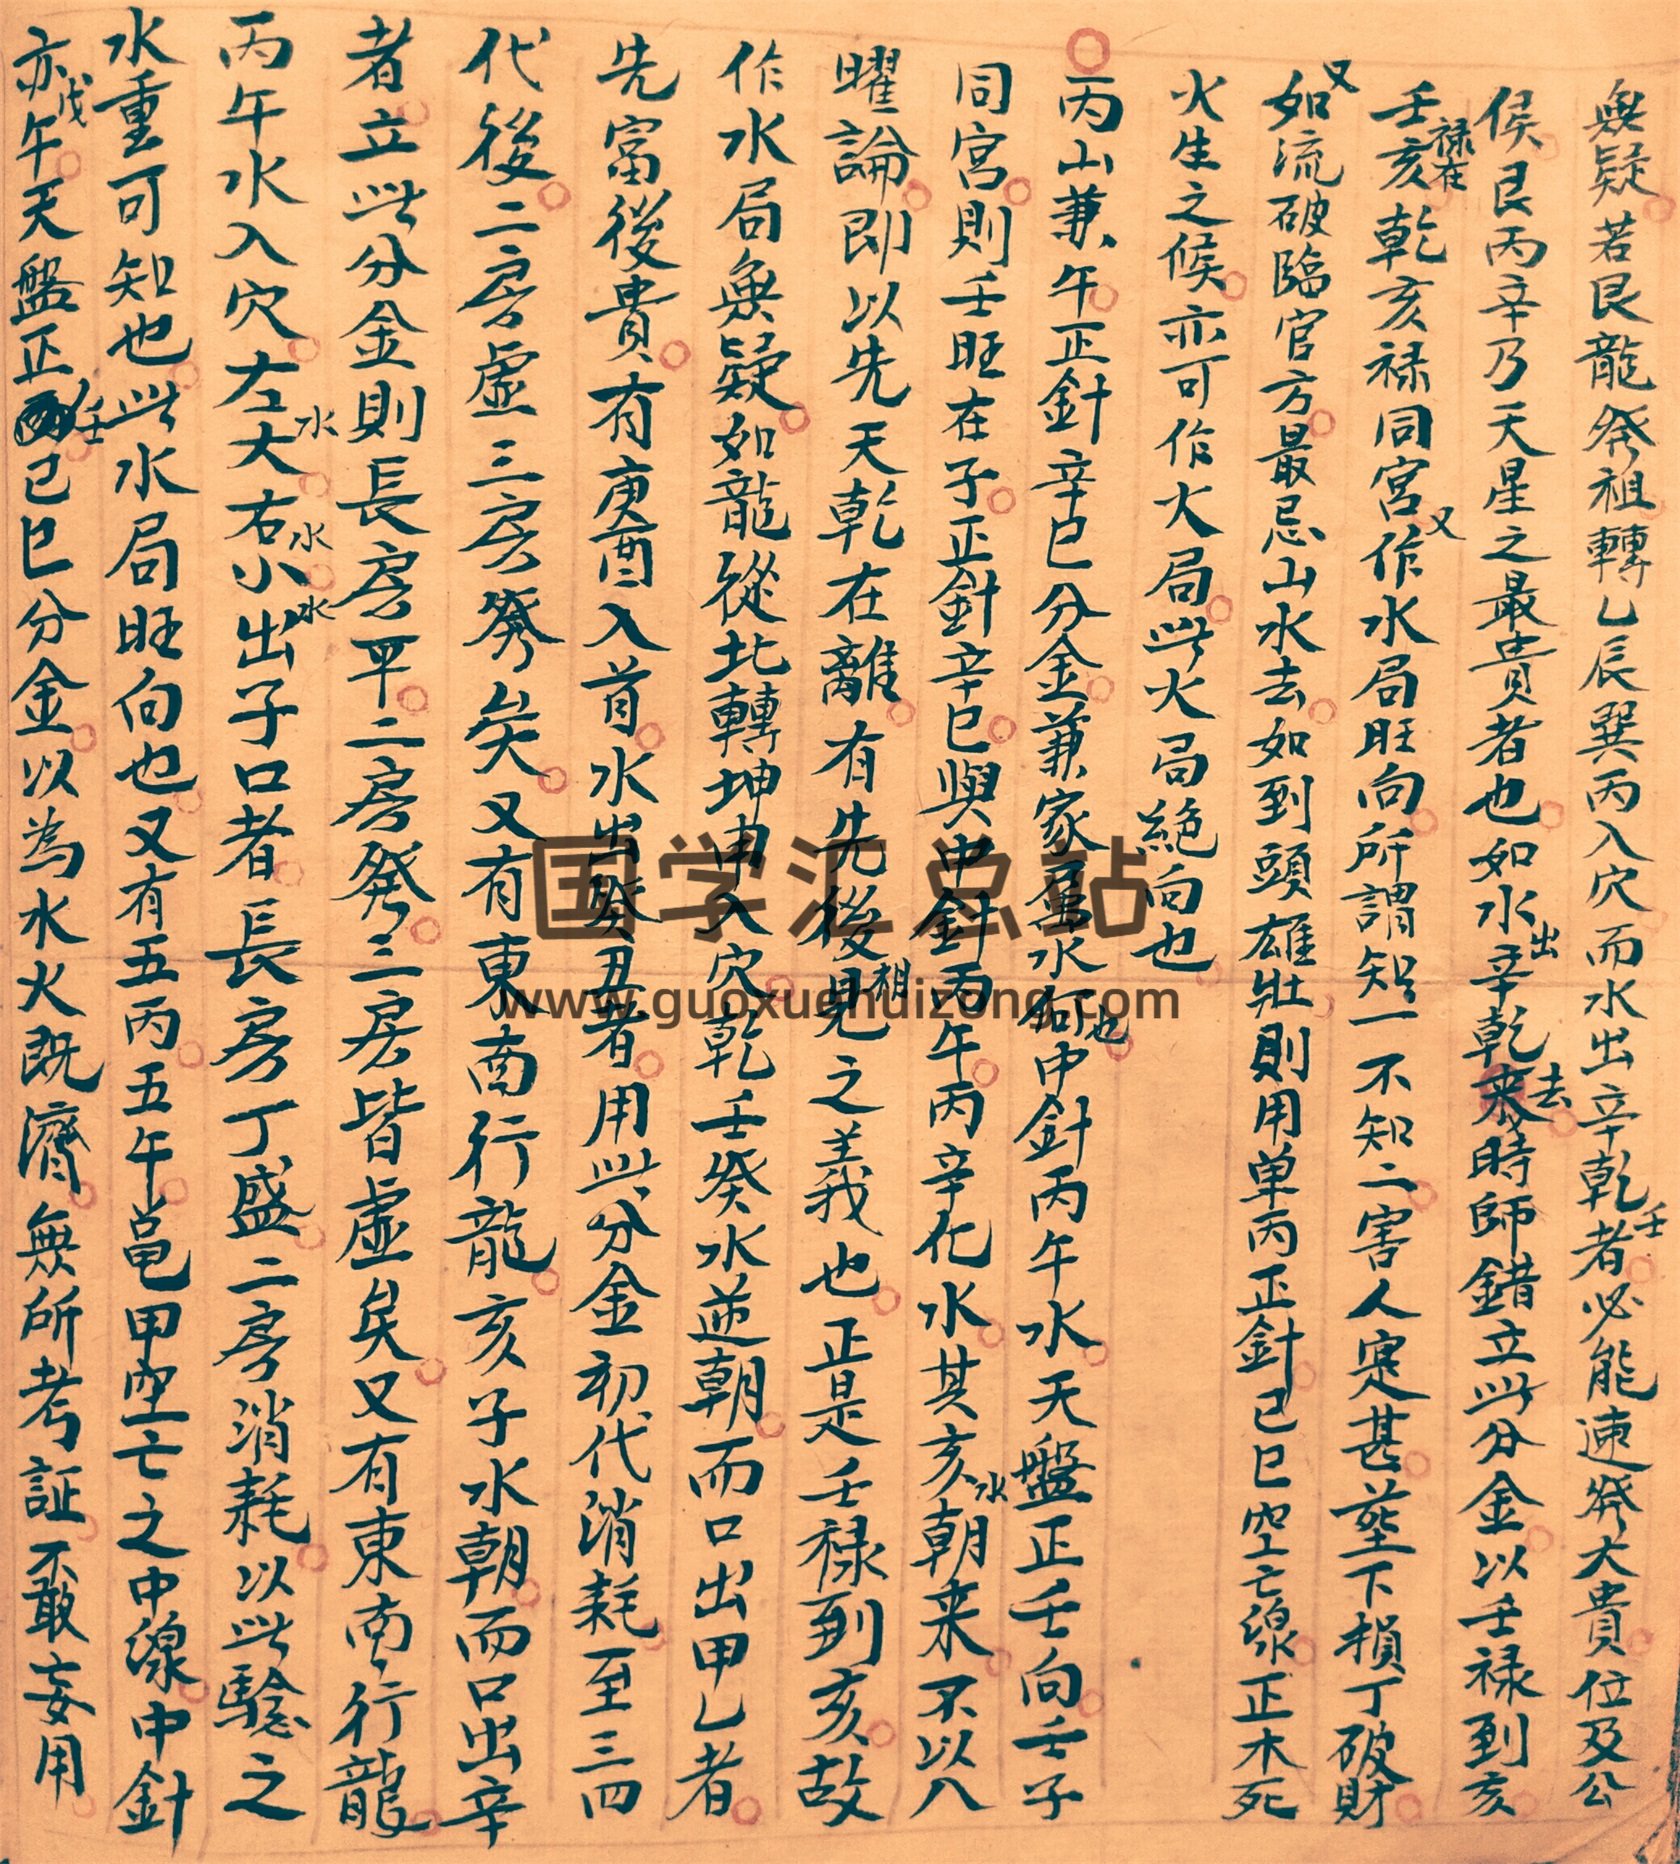 無疑若艮龍發祖轉乙辰巽丙入穴而水出辛乾壬者必能速發大貴位及公
侯艮丙辛乃天星之最貴者也如水出辛乾去時師錯立此分金以壬禄到亥
壬禄在亥乾亥禄同宮又作水局旺向所謂知一不知二害人寔甚塟下損丁破財
又如流破臨官方最忌山水去如到頭雄壯則用单丙正針己巳空亡線正木死
火生之候亦可作火局此火局絕向也
丙山兼午正針辛巳分金兼家属水向也中針丙午水天盤正壬向壬子
同宮則壬旺在子正針辛巳與中針丙午丙辛化水其亥水朝来不以八
曜論即以先天乾在離有先後相見之義也正是壬禄到亥故
作水局無疑如龍從北轉坤申入穴乾壬癸水逆朝而口出甲乙者
先富後貴有庚酉入首水出癸丑者用此分金初代消耗至三四
代後二房虛三房發矣又有東南行龍亥子水朝而口出辛
者立此分金則長房平二房發三房皆虛矣又有東南行龍
丙午水入穴左水大右水小水出子口者長房丁盛二房消耗以此驗之
水重可知也此水局旺向也又有五丙五午黾甲空亡之中線中針
亦戊午天盤正壬己巳分金以為水火既濟無所考証不敢妄用
国学汇总站
www.guoxuehuizong.com